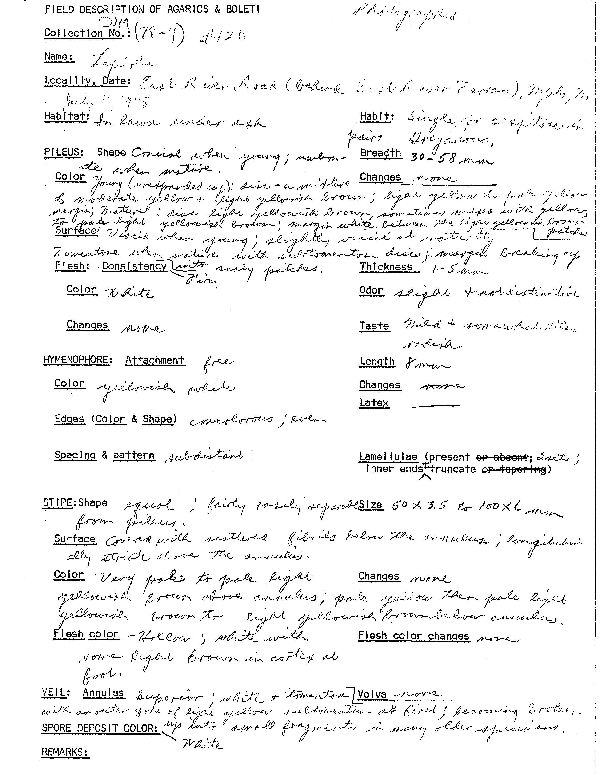 FIELD DESCRIPTION OF AGARICS & BOLETI Photographed
Collection No.:
Name:
Locality, Date: East River Road (behind
July
Habitat: In lawn under ash Habit: Single or
pairs
PILEUS: Shape Conical when young; umbonate when mature. Breadth 30-58 mm
Color Young (unexpanded cap): disc a mixture Changes none
of moderate yellow & light yellowish brown; light yellow to pale yellow
margin; mature: disc light yellowish brown sometimes mixed with yellow
to pale light yellowish brown; margin white between the light yellowish brown patches
Surface: when young; slightly at maturity
Tomentose when mature with subtomentose disc; margin breaking up
with scaly patches.
Flesh: Consistency Firm Thickness 1-5 mm
Color White Odor slight & not distinctive
Changes none Taste Mild & somewhat
HYMENOPHORE: Attachment free Length 8 mm
Color yellowish white Changes none
Latex ____
Edges (Color & Shape) concolorous; even
Spacing & pattern subdistant Lamellulae (present or absent;
inner ends truncate or tapering)
STIPE: Shape equal; fairly easily separates Size 50 X 3.5 to 100 X 6 mm
from pileus.
Surface Covered with scattered fibrils below the annulus; longitudinally
striate above the annulus.
Color Very pale to pale light Changes none
yellowish brown above annulus; pale yellow then pale light
yellowish brown to light yellowish brown below annulus.
Flesh color - Hollow; white with Flesh color changes none
some light brown in cortex at
foot.
VEIL: Annulus Superior; white & tomentose Volva none.
with an outer of light yellow at first; becoming broken
up into small fragments in many older specimens.
SPORE DEPOSIT COLOR: White
REMARKS: